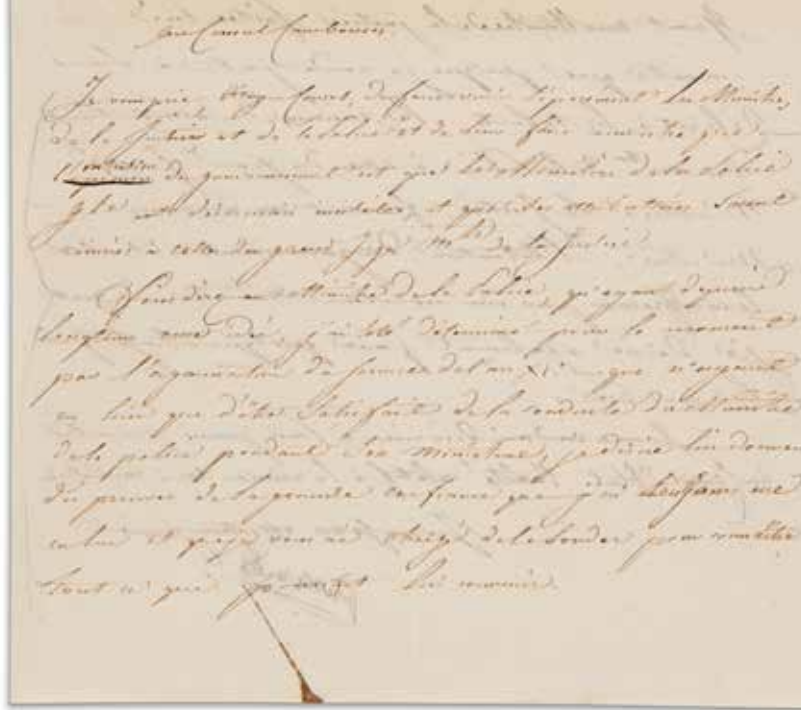 au Consul Cambacérès
Je vous prie, Citoyen Consul, de faire venir séparément les Ministres
de la Justice et de la Police et de leur faire connaître que
l'intention du gouvernement est que le Ministère de la Police
gle soit désormais inutile, et que les attributions soient
réunies à celles du grand Juge Mtre de la Justice.
Vous direz au Ministre de la Police, qu'ayant depuis
longtems cette idée, j'ai été déterminé pour le moment
par l'organisation du service de l'an XI que n'ayant
eu lieu que d'être satisfait de la conduite du Ministre
de la police pendant son ministère, je désire lui donner
des preuves de la grande confiance que j'ai toujours eue
en lui et que je vous ai chargé de le sonder pour connaître
tout ce qui pourrait lui convenir.